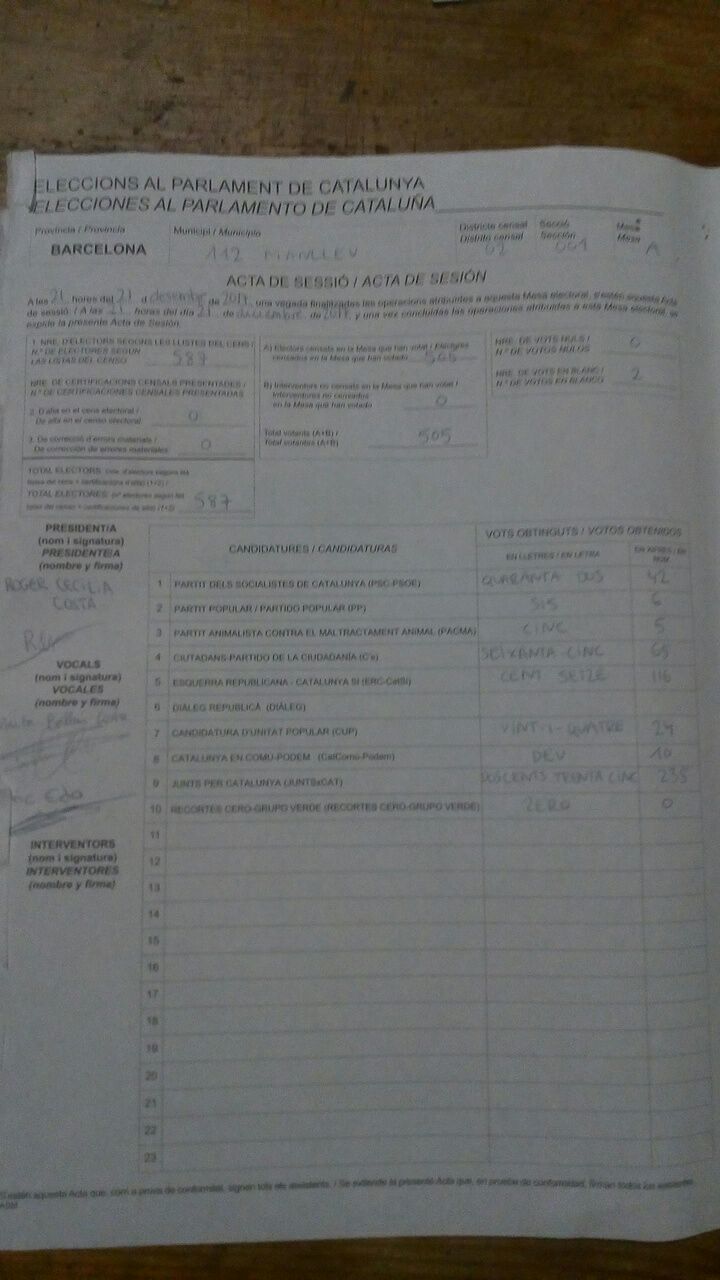 ELECCIONS AL PARLAMENT DE CATALUNYA
ELECCIONES AL PARLAMENTO DE CATALUÑA
Província / Provincia Municipi / Municipio Districte censal Secció Mesa
Distrito censal Sección Mesa
BARCELONA 112 MANLLEU 02 001 A
ACTA DE SESSIÓ / ACTA DE SESIÓN
A les 21 hores del 21 d desembre de 2017, una vegada finalitzades les operacions atribuïdes a aquesta Mesa electoral, s'estén aquesta Acta
de sessió / A las 21 horas del día 21 de diciembre de 2017 y una vez concluidas las operaciones atribuidas a esta Mesa electoral, se
expide la presente Acta de Sesión.
1. NRE. D'ELECTORS SEGONS LES LLISTES DEL CENS /
N.º DE ELECTORES SEGÚN
LAS LISTAS DEL CENSO 587
NRE. DE CERTIFICACIONS CENSALS PRESENTADES /
N.º DE CERTIFICACIONES CENSALES PRESENTADAS
2. D'alta en el cens electoral /
De alta en el censo electoral 0
3. De correcció d'errors materials /
De corrección de errores materiales 0
TOTAL ELECTORS
TOTAL ELECTORES 587
A) Electors censats en la Mesa que han votat / Electores
censados en la Mesa que han votado 505
B) Interventors no censats en la Mesa que han votat /
Interventores no censados
en la Mesa que han votado 0
Total votants (A+B) /
Total votantes (A+B) 505
NRE. DE VOTS NULS /
N.º DE VOTOS NULOS 0
NRE. DE VOTS EN BLANC /
N.º DE VOTOS EN BLANCO 2
PRESIDENT/A
(nom i signatura)
PRESIDENTE/A
(nombre y firma)
ROGER CECILIA
COSTA
VOCALS
(nom i signatura)
VOCALES
(nombre y firma)
INTERVENTORS
(nom i signatura)
INTERVENTORES
(nombre y firma)
CANDIDATURES / CANDIDATURAS VOTS OBTINGUTS / VOTOS OBTENIDOS
EN LLETRES / EN LETRA EN XIFRES / EN NÚM.
1 PARTIT DELS SOCIALISTES DE CATALUNYA (PSC-PSOE) QUARANTA DOS 42
2 PARTIT POPULAR / PARTIDO POPULAR (PP) SIS 6
3 PARTIT ANIMALISTA CONTRA EL MALTRACTAMENT ANIMAL (PACMA) CINC 5
4 CIUTADANS-PARTIDO DE LA CIUDADANÍA (C's) SEIXANTA CINC 65
5 ESQUERRA REPUBLICANA - CATALUNYA SÍ (ERC-CatSí) CENT SETZE 116
6 DIÀLEG REPUBLICÀ (DIÀLEG)
7 CANDIDATURA D'UNITAT POPULAR (CUP) VINT-I-QUATRE 24
8 CATALUNYA EN COMÚ-PODEM (CatComú-Podem) DEU 10
9 JUNTS PER CATALUNYA (JUNTSxCAT) DOSCENTS TRENTA CINC 235
10 RECORTES CERO-GRUPO VERDE (RECORTES CERO-GRUPO VERDE) ZERO 0
11
12
13
14
15
16
17
18
19
20
21
22
23
S'estén aquesta Acta que, com a prova de conformitat, signen tots els assistents. / Se extiende la presente Acta que, en prueba de conformidad, firman todos los asistentes